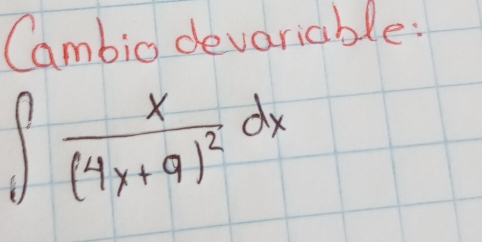 Cambio de variable:
∫ x / (4x+9)² dx